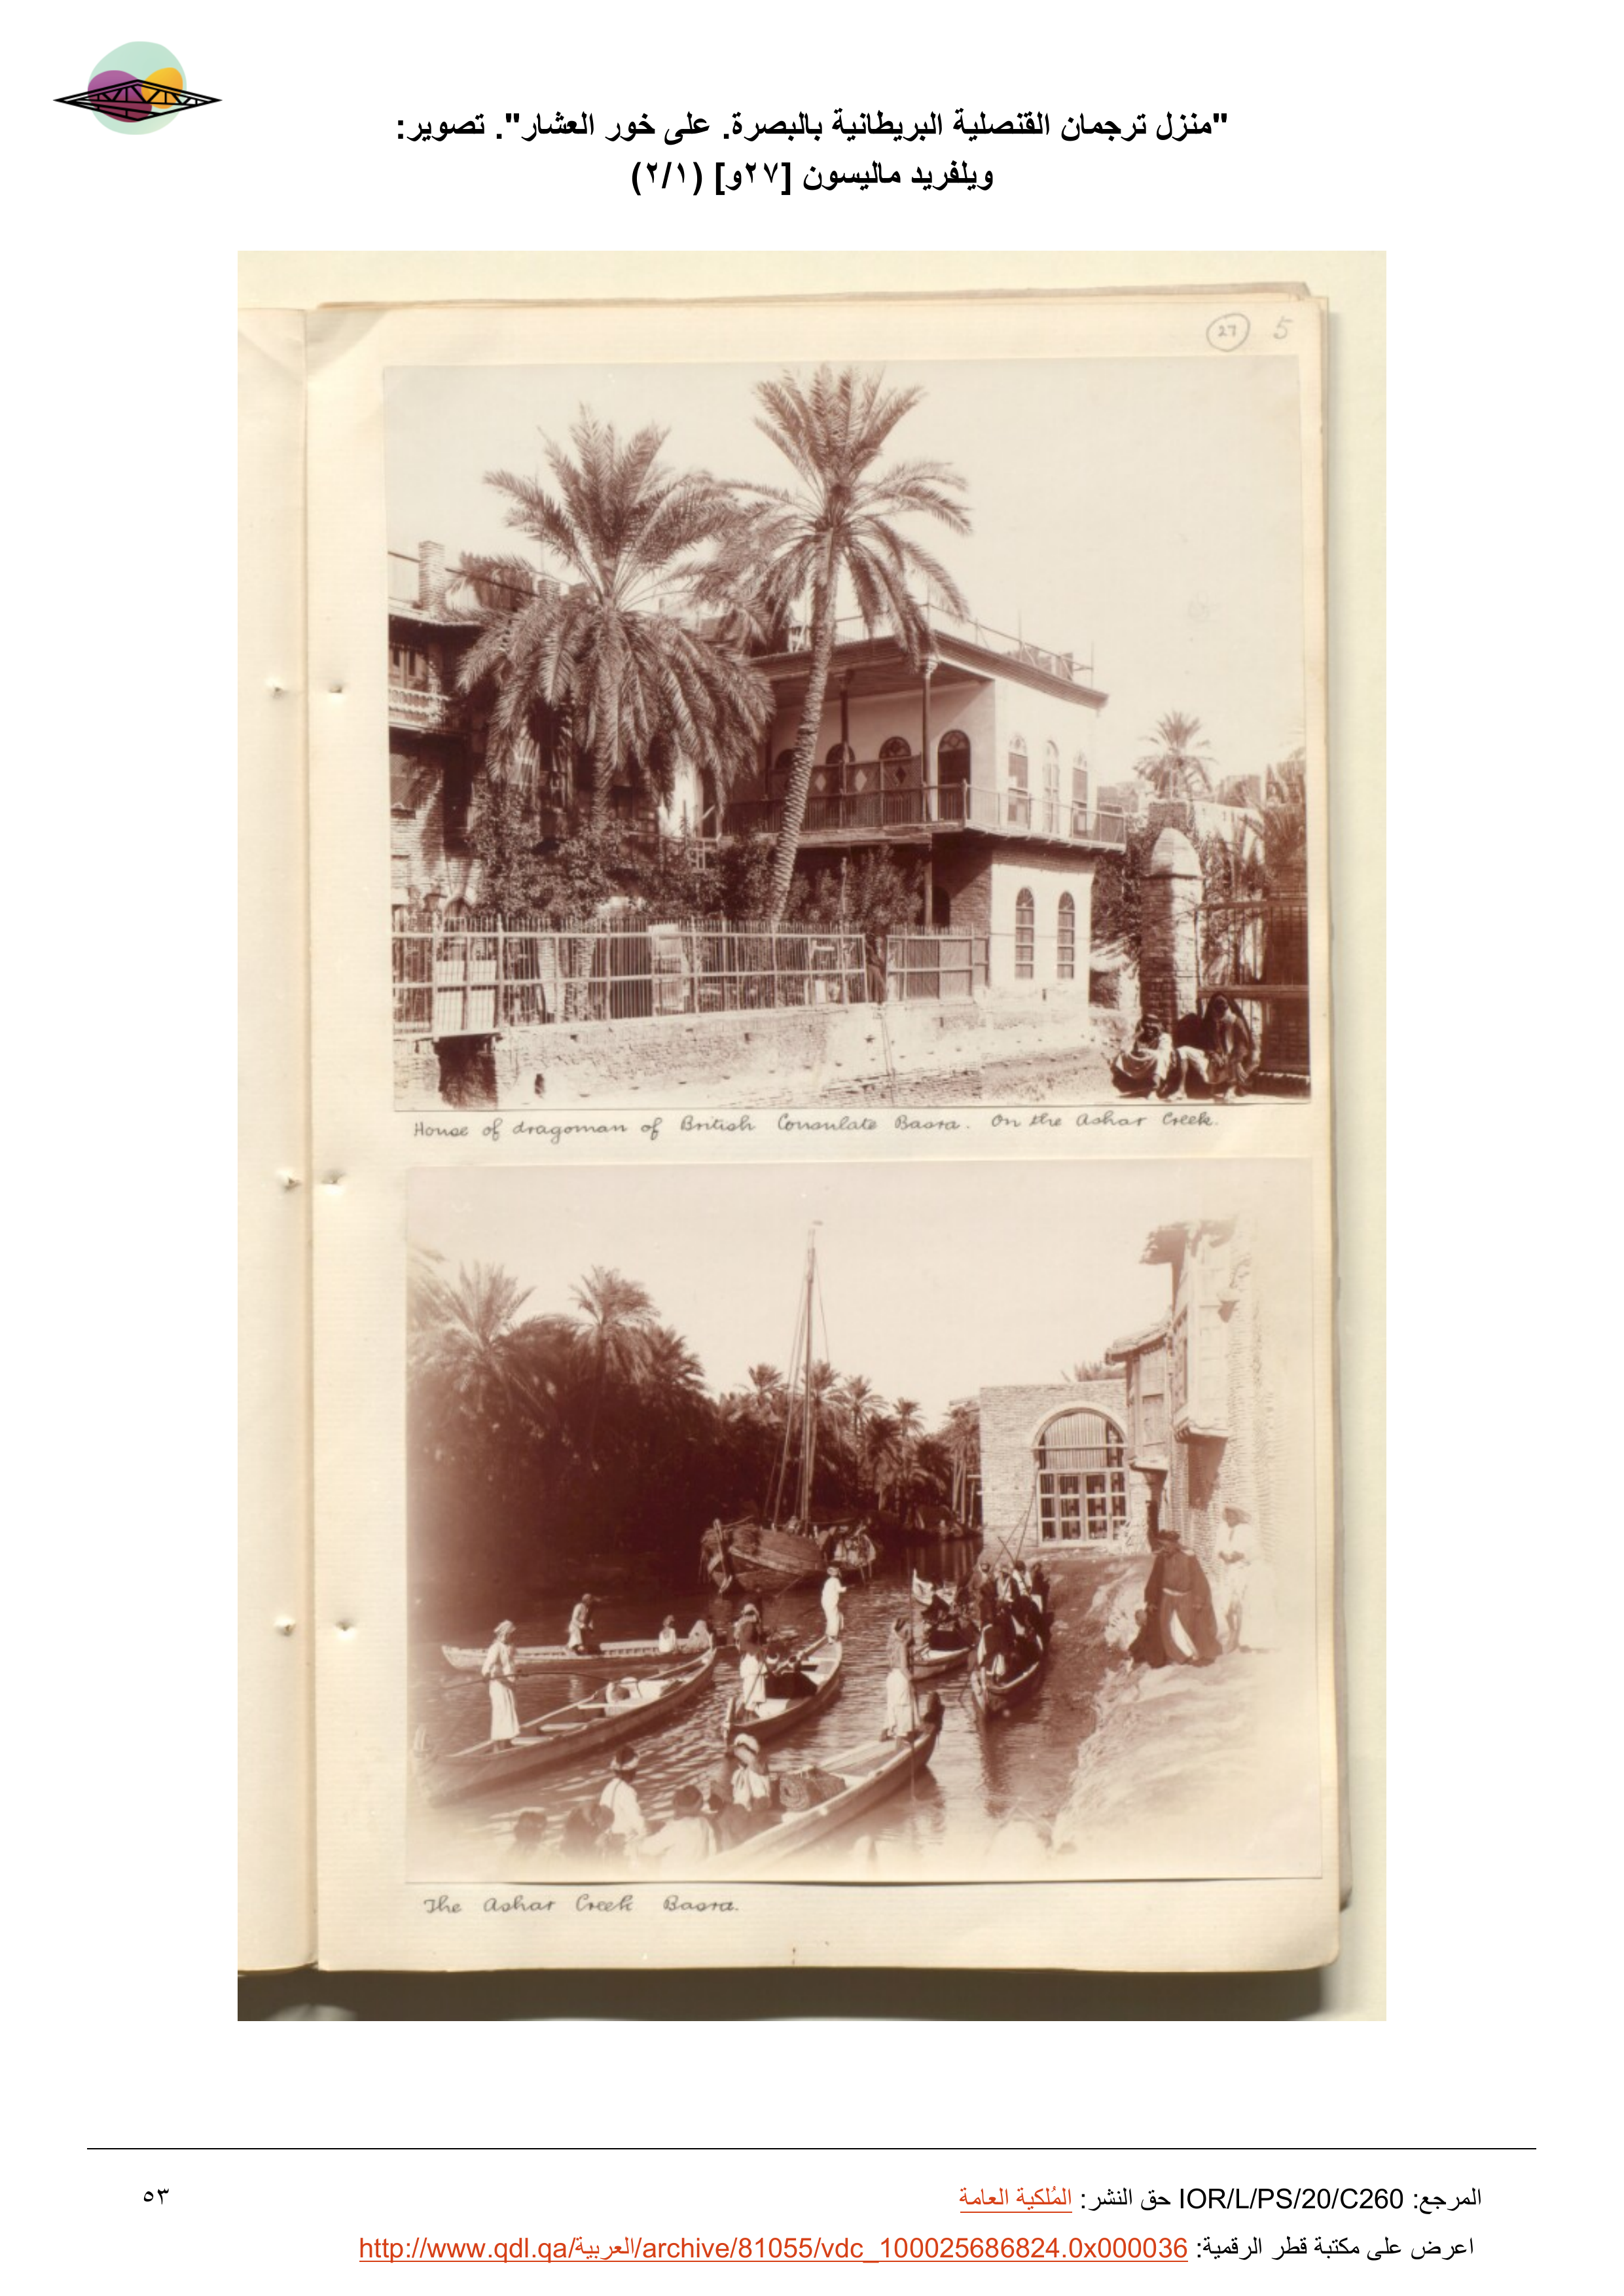 "منزل ترجمان القنصلية البريطانية بالبصرة. على خور العشار". تصوير:
ويلفريد ماليسون [٢٧و] (٢/١)
27 5
House of dragoman of British Consulate Basra. On the Ashar Creek.
The Ashar Creek Basra.
المرجع: IOR/L/PS/20/C260 حق النشر: المُلكية العامة
٥٣
اعرض على مكتبة قطر الرقمية: http://www.qdl.qa/العربية/archive/81055/vdc_100025686824.0x000036